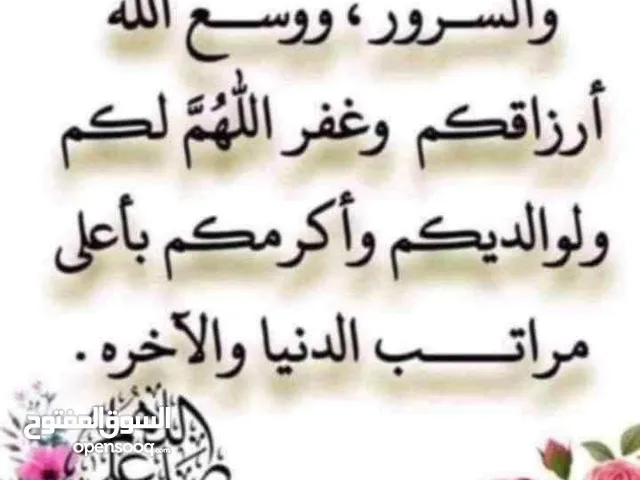 والسرور ، ووسع الله
أرزاقكم وغفر اللهُمَّ لكم
ولوالديكم وأكرمكم بأعلى
مراتب الدنيا والآخره .
السوق المفتوح
opensooq.com
اللهم
صل على